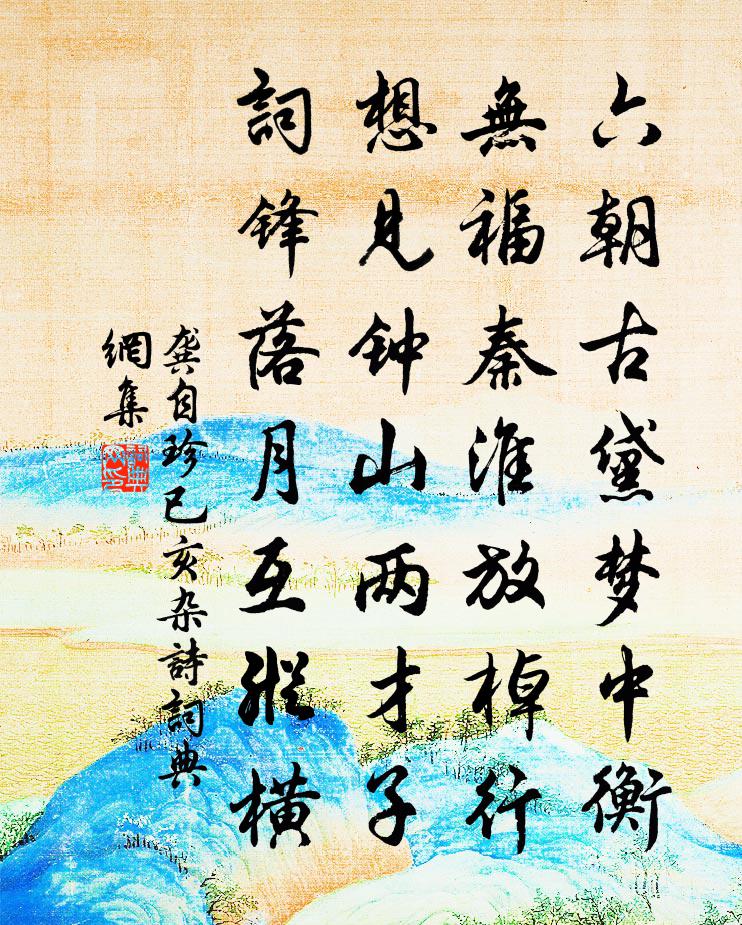 六朝古黛梦中衡
無福秦淮放棹行
想見钟山两才子
詞锋落月互縱横
龚自珍已亥杂詩詞典
網集